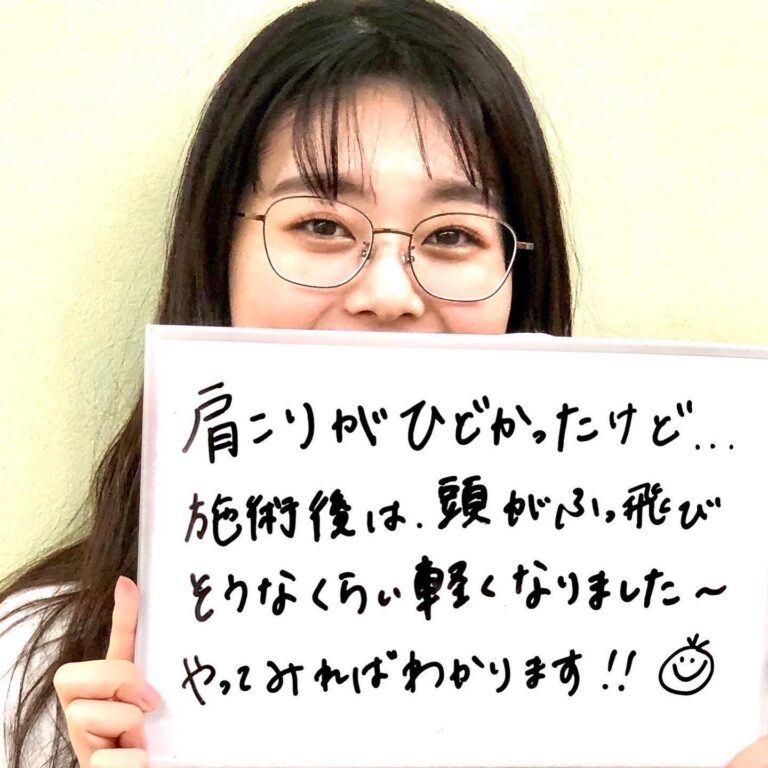 肩こりがひどかったけど...
施術後は、頭がふっ飛び
そうなくらい軽くなりました〜
やってみればわかります!!